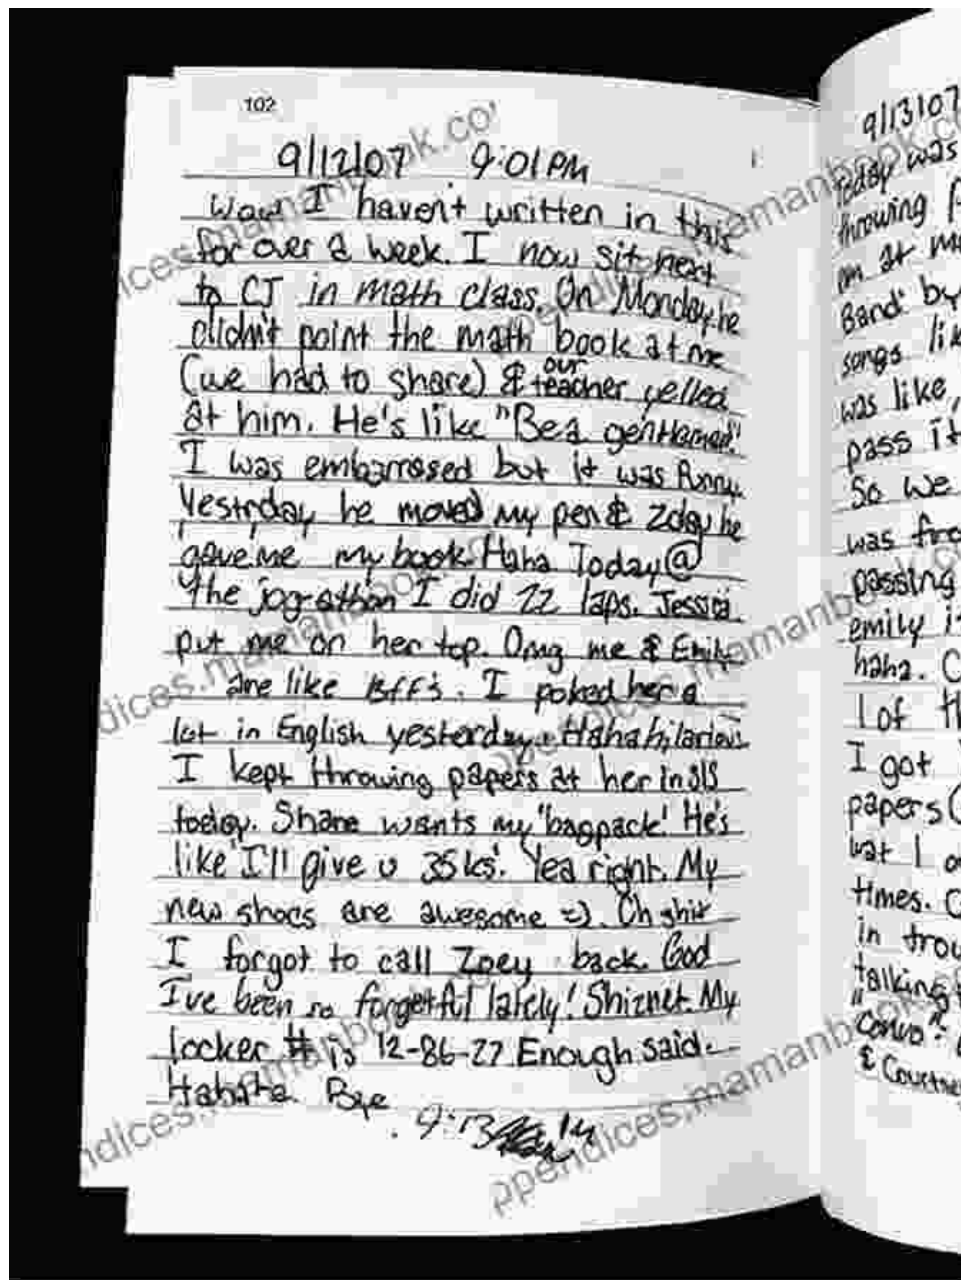 102
9/12/07 9:01PM
Wow I haven't written in this
for over a week. I now sit next
to CJ in math class. On Monday he
didn't point the math book at me
(we had to share) & our teacher yelled
at him. He's like "Be a gentleman".
I was embarrased but it was funny.
Yestrday he moved my pen & 2day he
gave me my book. Haha Today @
the jog-athon I did 22 laps. Jessica
put me on her top. Omg me & Emily
are like BFF's. I poked her a
lot in English yesterday. Haha hilarious
I kept throwing papers at her in SIS
today. Shane wants my "bagpack". He's
like "I'll give u 35 ks". Yea right. My
new shoes are awesome =). Oh shit
I forgot to call Zoey back. God
I've been so forgetful lately! Shiznet. My
locker # is 12-86-27 Enough said.
Hahaha. Bye
9:13
9/13/07
Today was
throwing
at
Band" by
songs lik
was like,
pass it
So we
was fro
passing
emily i
haha. C
1 of th
I got
papers (
but I
times. C
in trou
talking
"convo".
& Courtne
appendices.mamanbook.co